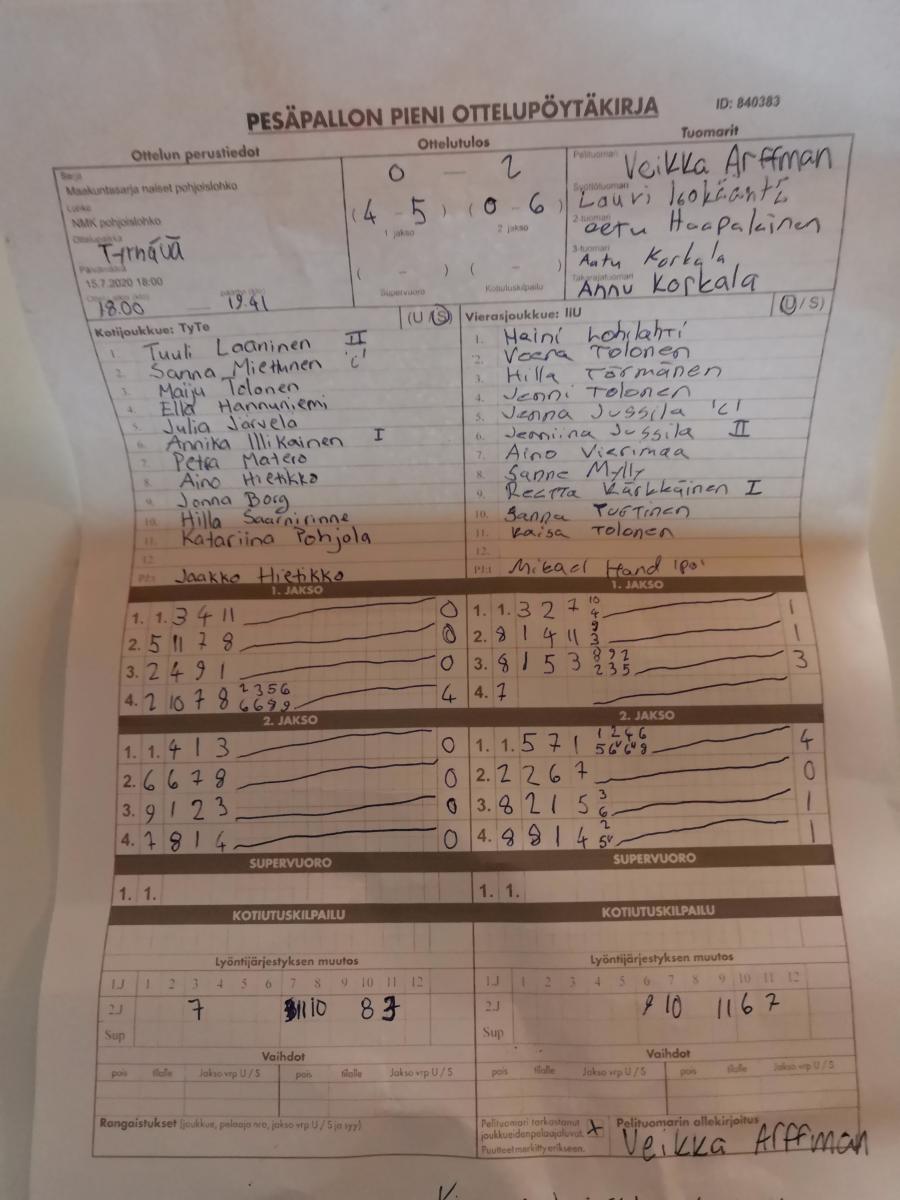 PESÄPALLON PIENI OTTELUPÖYTÄKIRJA
ID: 840383
Ottelun perustiedot
Ottelutulos
Tuomarit
Sarja
Maakuntasarja naiset pohjoislohko
Lohko
NMK pohjoislohko
Ottelupaikka
Tyrnävä
Päivämäärä
15.7.2020 18:00
18.00 — 19.41
0 — 2
(4 - 5) (0 - 6)
1 jakso 2 jakso
( - ) ( - )
Supervuoro Kotiutuskilpailu
Pelituomari Veikka Arffman
Syöttötuomari Lauri Isokääntä
2-tuomari Eetu Haapalainen
3-tuomari Aatu Korkala
Takarajatuomari Annu Korkala
Kotijoukkue: TyTe (U / S)
1. Tuuli Laaninen II
2. Sanna Miettunen 'c'
3. Maiju Tolonen
4. Ella Hannuniemi
5. Julia Järvelä
6. Annika Illikainen I
7. Petra Matero
8. Aino Hietikko
9. Jonna Borg
10. Hilla Saarnirinne
11. Katariina Pohjola
12.
PJ: Jaakko Hietikko
Vierasjoukkue: IiU (U / S)
1. Heini Lohilahti
2. Veera Tolonen
3. Hilla Törmänen
4. Jenni Tolonen
5. Jenna Jussila 'C'
6. Jenniina Jussila II
7. Aino Vierimaa
8. Sanne Mylly
9. Reetta Kärkkäinen I
10. Sanna Tuttinen
11. Kaisa Tolonen
12.
PJ: Mikael Hand
1. JAKSO
1. 1. 3 4 11 0
2. 5 11 7 8 0
3. 2 4 9 1 0
4. 2 10 7 8 2 3 5 6 4
6 6 9 9
1. JAKSO
1. 1. 3 2 7 10 1
4
2. 8 1 4 11 9 1
3
3. 8 1 5 3 8 9 2 3
2 3 5
4. 7
2. JAKSO
1. 1. 4 1 3 0
2. 6 6 7 8 0
3. 9 1 2 3 0
4. 7 8 1 4 0
2. JAKSO
1. 1. 5 7 1 1 2 4 6 4
5 6v 6v 9
2. 2 2 6 7 0
3. 8 2 1 5 3 1
6
4. 8 8 1 4 2 1
5v
SUPERVUORO
1. 1.
SUPERVUORO
1. 1.
KOTIUTUSKILPAILU
KOTIUTUSKILPAILU
Lyöntijärjestyksen muutos
1.J 1 2 3 4 5 6 7 8 9 10 11 12
2.J 7 11 10 8 3
Sup
Lyöntijärjestyksen muutos
1.J 1 2 3 4 5 6 7 8 9 10 11 12
2.J 9 10 11 6 7
Sup
Vaihdot
pois tilalle Jakso vrp U / S pois tilalle Jakso vrp U / S
Vaihdot
pois tilalle Jakso vrp U / S pois tilalle Jakso vrp U / S
Rangaistukset (joukkue, pelaaja nro, jakso vrp U / S ja syy)
Pelituomari tarkastanut
joukkueiden pelaajaluvat. x
Puutteet merkitty erikseen.
Pelituomarin allekirjoitus
Veikka Arffman